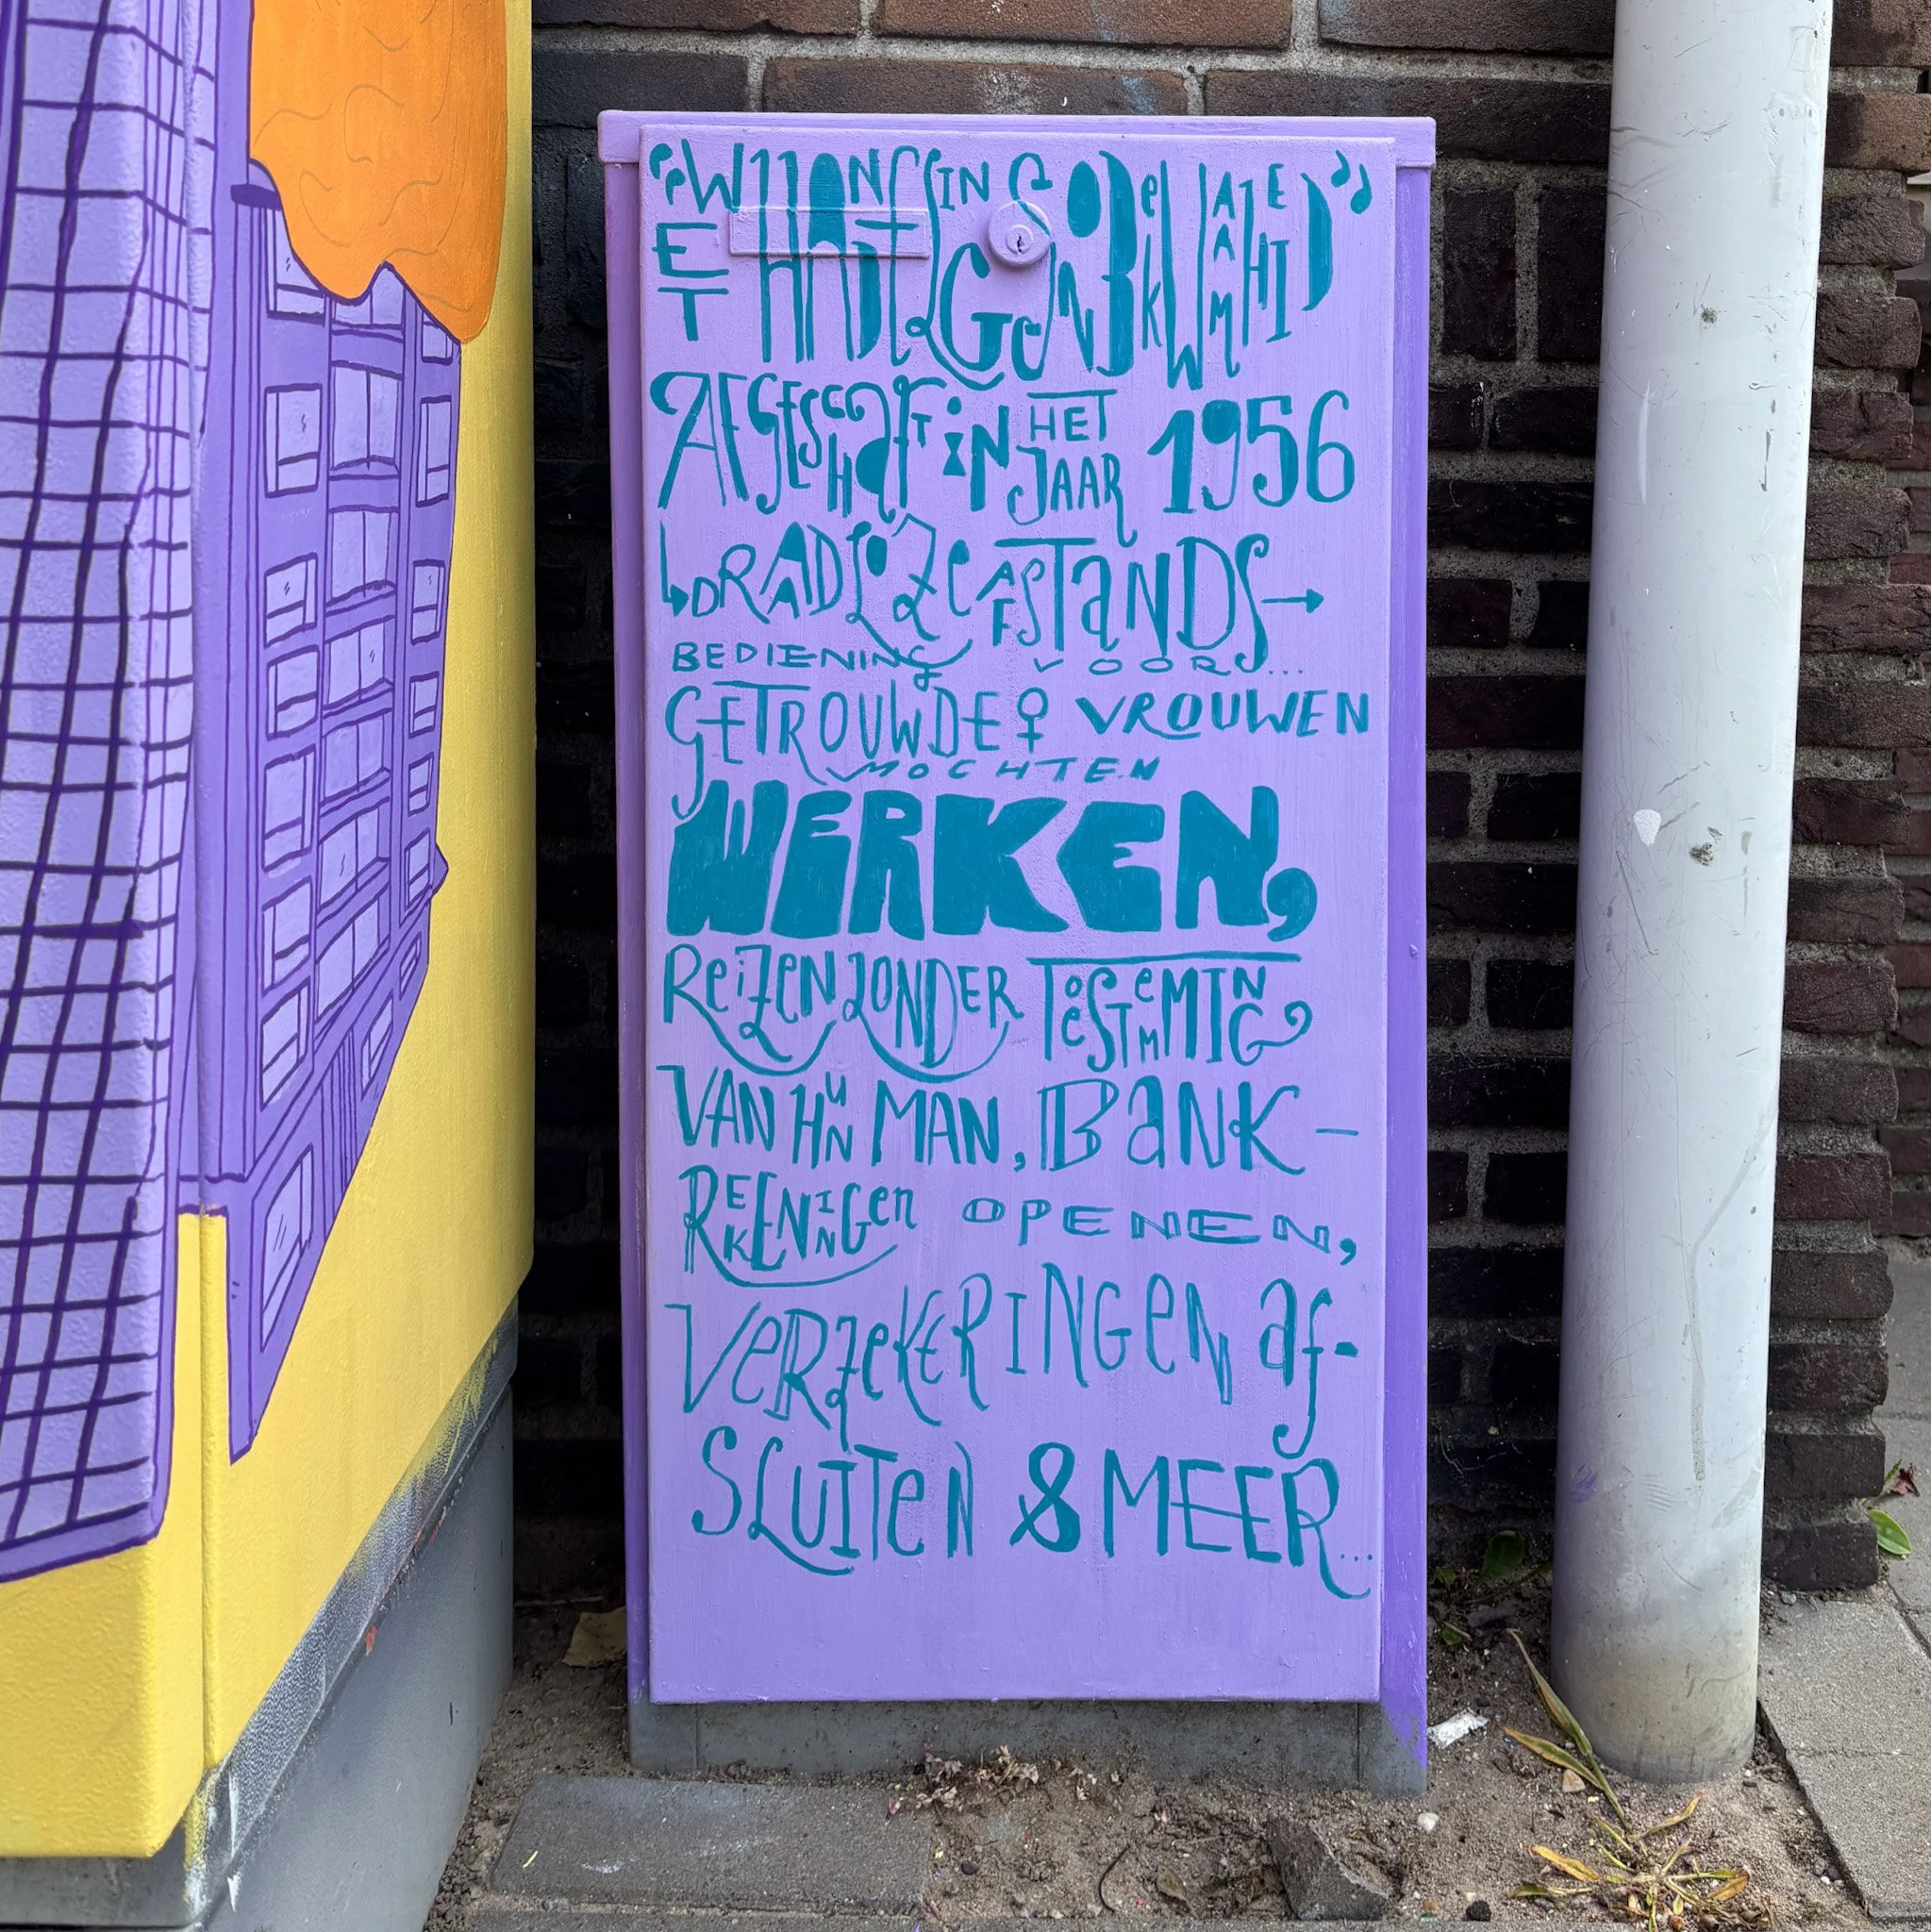 “WET HANDELINGSONBEKWAAMHEID”
AFGESCHAFT IN HET JAAR 1956
↳DRAADLOZE AFSTANDS→
BEDIENING VOOR...
GETROUWDE♀ VROUWEN
MOCHTEN
WERKEN,
REIZEN ZONDER TOESTEMMING
VAN HUN MAN, BANK-
REKENINGEN OPENEN,
VERZEKERINGEN AF-
SLUITEN & MEER...